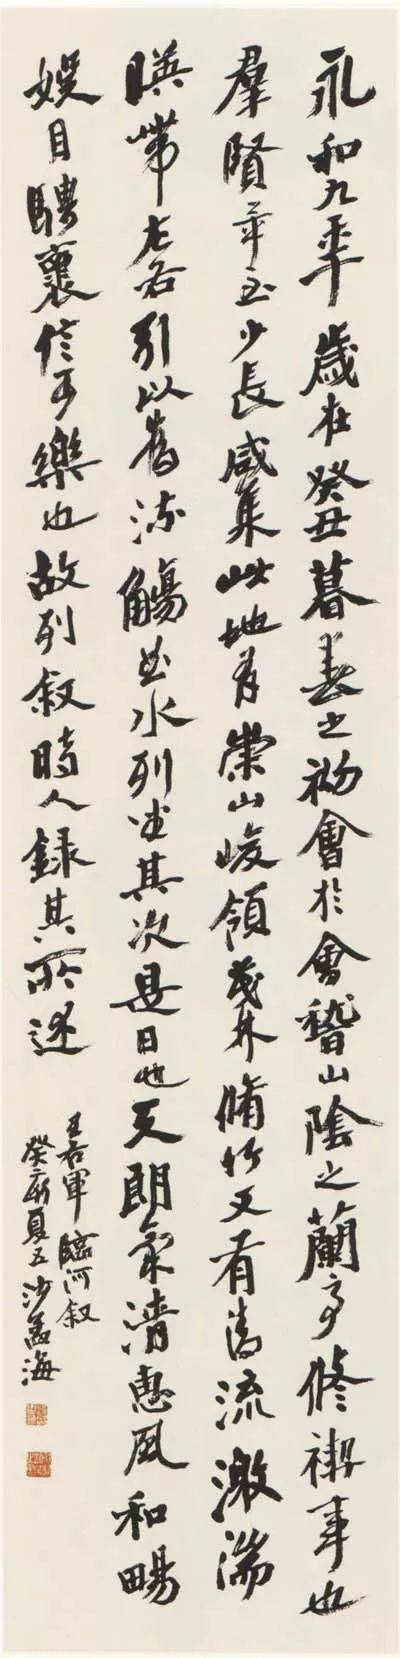 永和九年歲在癸丑暮春之初會於會稽山陰之蘭亭修禊事也
羣賢畢至少長咸集此地有崇山峻領茂林脩竹又有清流激湍
暎帶左右引以為流觴曲水列坐其次是日也天朗氣清惠風和暢
娛目騁褱信可樂也故列叙時人錄其所述
王右軍臨河叙
癸亥夏五沙孟海